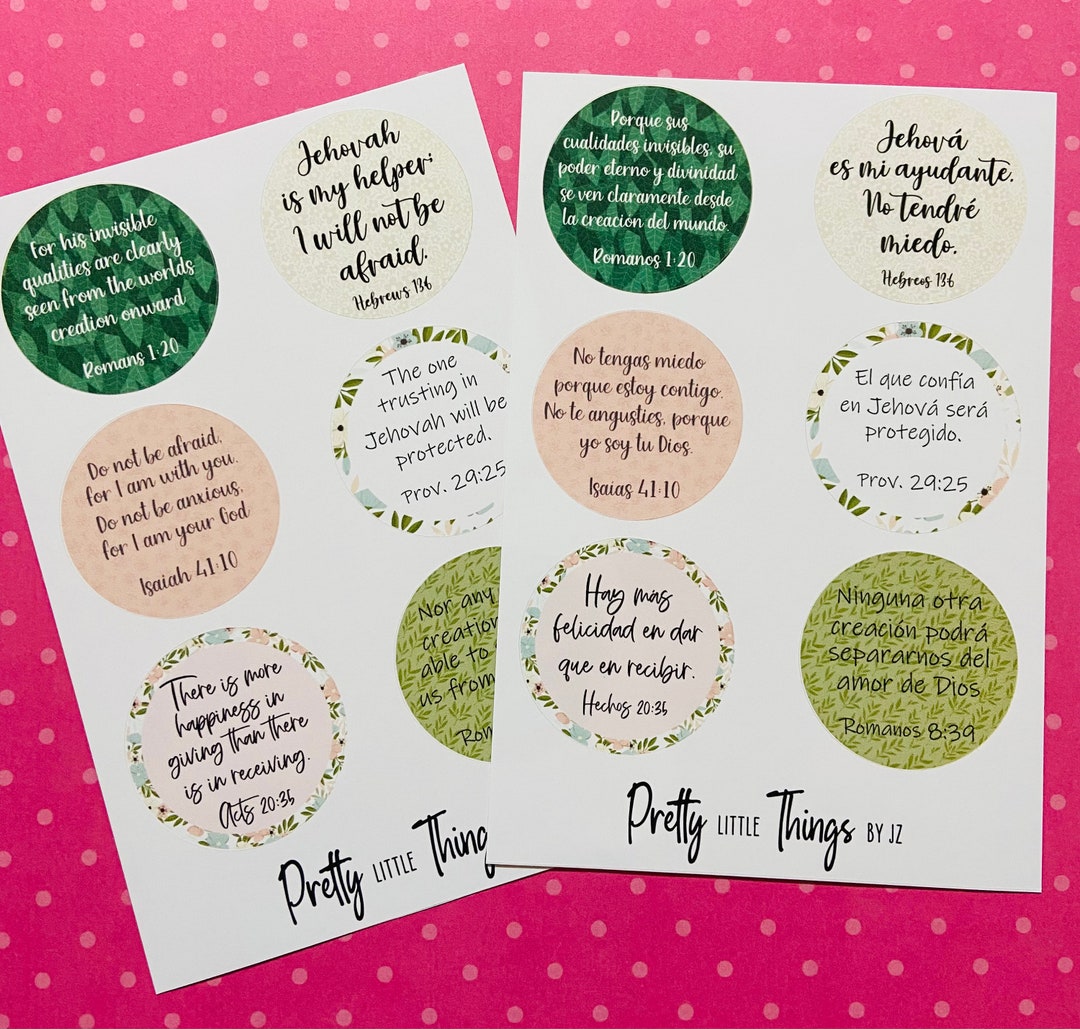 For his invisible
qualities are clearly
seen from the worlds
creation onward
Romans 1:20
Jehovah
is my helper;
I will not be
afraid.
Hebrews 13:6
Do not be afraid,
for I am with you.
Do not be anxious,
for I am your God
Isaiah 41:10
The one
trusting in
Jehovah will be
protected.
Prov. 29:25
There is more
happiness in
giving than there
is in receiving.
Acts 20:35
Nor any
creation
able to
us from
Rom
Pretty LITTLE Thing
Porque sus
cualidades invisibles, su
poder eterno y divinidad
se ven claramente desde
la creacion del mundo.
Romanos 1:20
Jehová
es mi ayudante.
No tendré
miedo.
Hebreos 13:6
No tengas miedo
porque estoy contigo.
No te angusties, porque
yo soy tu Dios.
Isaias 41:10
El que confía
en Jehová será
protegido.
Prov. 29:25
Hay mas
felicidad en dar
que en recibir.
Hechos 20:35
Ninguna otra
creación podrá
separarnos del
amor de Dios
Romanos 8:39
Pretty LITTLE Things BY JZ